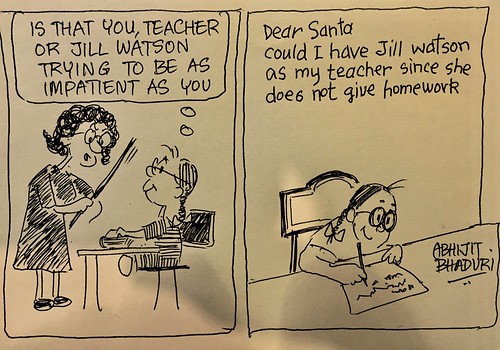 IS THAT YOU, TEACHER
OR JILL WATSON
TRYING TO BE AS
IMPATIENT AS YOU
Dear Santa
could I have Jill watson
as my teacher since she
does not give homework
ABHIJIT
BHADURI